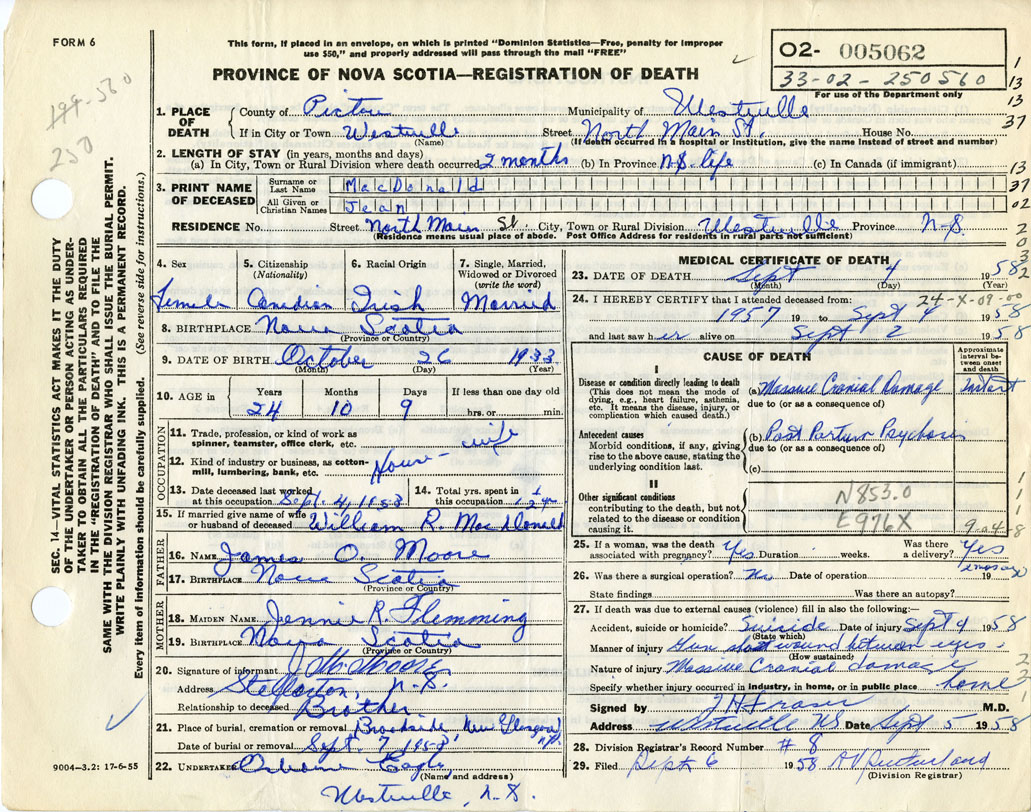 FORM 6
This form, if placed in an envelope, on which is printed "Dominion Statistics—Free, penalty for improper
use $50," and properly addressed will pass through the mail "FREE"
PROVINCE OF NOVA SCOTIA—REGISTRATION OF DEATH
02- 005062
33-02-250560
For use of the Department only
199-560
250
1
13
13
37
13
37
02
2
0
3
2
1. PLACE OF DEATH
County of Pictou Municipality of Westville
If in City or Town Westville Street North Main St. House No.
(Name) (If death occurred in a hospital or institution, give the name instead of street and number)
2. LENGTH OF STAY (in years, months and days)
(a) In City, Town or Rural Division where death occurred 2 months (b) In Province N.S. life (c) In Canada (if immigrant)
3. PRINT NAME OF DECEASED
Surname or Last Name MacDonald
All Given or Christian Names Jean
RESIDENCE No. Street North Main St. City, Town or Rural Division Westville Province N.S.
(Residence means usual place of abode. Post Office Address for residents in rural parts not sufficient)
4. Sex
Female
5. Citizenship (Nationality)
Canadian
6. Racial Origin
Irish
7. Single, Married, Widowed or Divorced (write the word)
Married
8. BIRTHPLACE Nova Scotia
(Province or Country)
9. DATE OF BIRTH October 26 1933
(Month) (Day) (Year)
10. AGE in
Years Months Days If less than one day old
24 10 9 hrs. or min.
OCCUPATION
11. Trade, profession, or kind of work as spinner, teamster, office clerk, etc. wife
12. Kind of industry or business, as cotton-mill, lumbering, bank, etc. House-
13. Date deceased last worked at this occupation Sept. 4, 1958
14. Total yrs. spent in this occupation
15. If married give name of wife or husband of deceased William R. MacDonald
FATHER
16. NAME James O. Moore
17. BIRTHPLACE Nova Scotia
(Province or Country)
MOTHER
18. MAIDEN NAME Jennie R. Flemming
19. BIRTHPLACE Nova Scotia
(Province or Country)
20. Signature of informant Moore
Address Stellarton, N.S.
Relationship to deceased Brother
21. Place of burial, cremation or removal Brookside, New Glasgow N.S.
Date of burial or removal Sept. 7, 1958
22. UNDERTAKER Osborne Eagle,
(Name and address)
Westville, N.S.
MEDICAL CERTIFICATE OF DEATH
23. DATE OF DEATH Sept 4 1958
(Month) (Day) (Year)
24. I HEREBY CERTIFY that I attended deceased from: 24-X-09-00
1957 19 to Sept 4 1958
and last saw her alive on Sept 2 1958
CAUSE OF DEATH
Approximate interval between onset and death
I
Disease or condition directly leading to death
(This does not mean the mode of dying, e.g., heart failure, asthenia, etc. It means the disease, injury, or complication which caused death.)
(a) Massive Cranial Damage Instant
due to (or as a consequence of)
Antecedent causes
Morbid conditions, if any, giving rise to the above cause, stating the underlying condition last.
(b) Post Partum Psychosis
due to (or as a consequence of)
(c)
II
Other significant conditions
contributing to the death, but not related to the disease or condition causing it.
N853.0
E976X
9-04-8
1
1
1
1
25. If a woman, was the death associated with pregnancy? Yes Duration weeks. Was there a delivery? Yes
26. Was there a surgical operation? No Date of operation 19
State findings Was there an autopsy?
27. If death was due to external causes (violence) fill in also the following:—
Accident, suicide or homicide? Suicide Date of injury Sept 4 1958
(State which)
Manner of injury Gun shot wound between eyes.
(How sustained)
Nature of injury Massive Cranial damage
Specify whether injury occurred in industry, in home, or in public place home
2
2
3
Signed by J H Fraser M.D.
Address Westville NS. Date Sept 5 1958
28. Division Registrar's Record Number # 8
29. Filed Sept 6 1958
(Division Registrar)
SEC. 14—VITAL STATISTICS ACT MAKES IT THE DUTY
OF THE UNDERTAKER OR PERSON ACTING AS UNDER-
TAKER TO OBTAIN ALL THE PARTICULARS REQUIRED
IN THE "REGISTRATION OF DEATH" AND TO FILE THE
SAME WITH THE DIVISION REGISTRAR WHO SHALL ISSUE THE BURIAL PERMIT.
WRITE PLAINLY WITH UNFADING INK. THIS IS A PERMANENT RECORD.
Every item of information should be carefully supplied. (See reverse side for instructions.)
9004-3.2: 17-6-55